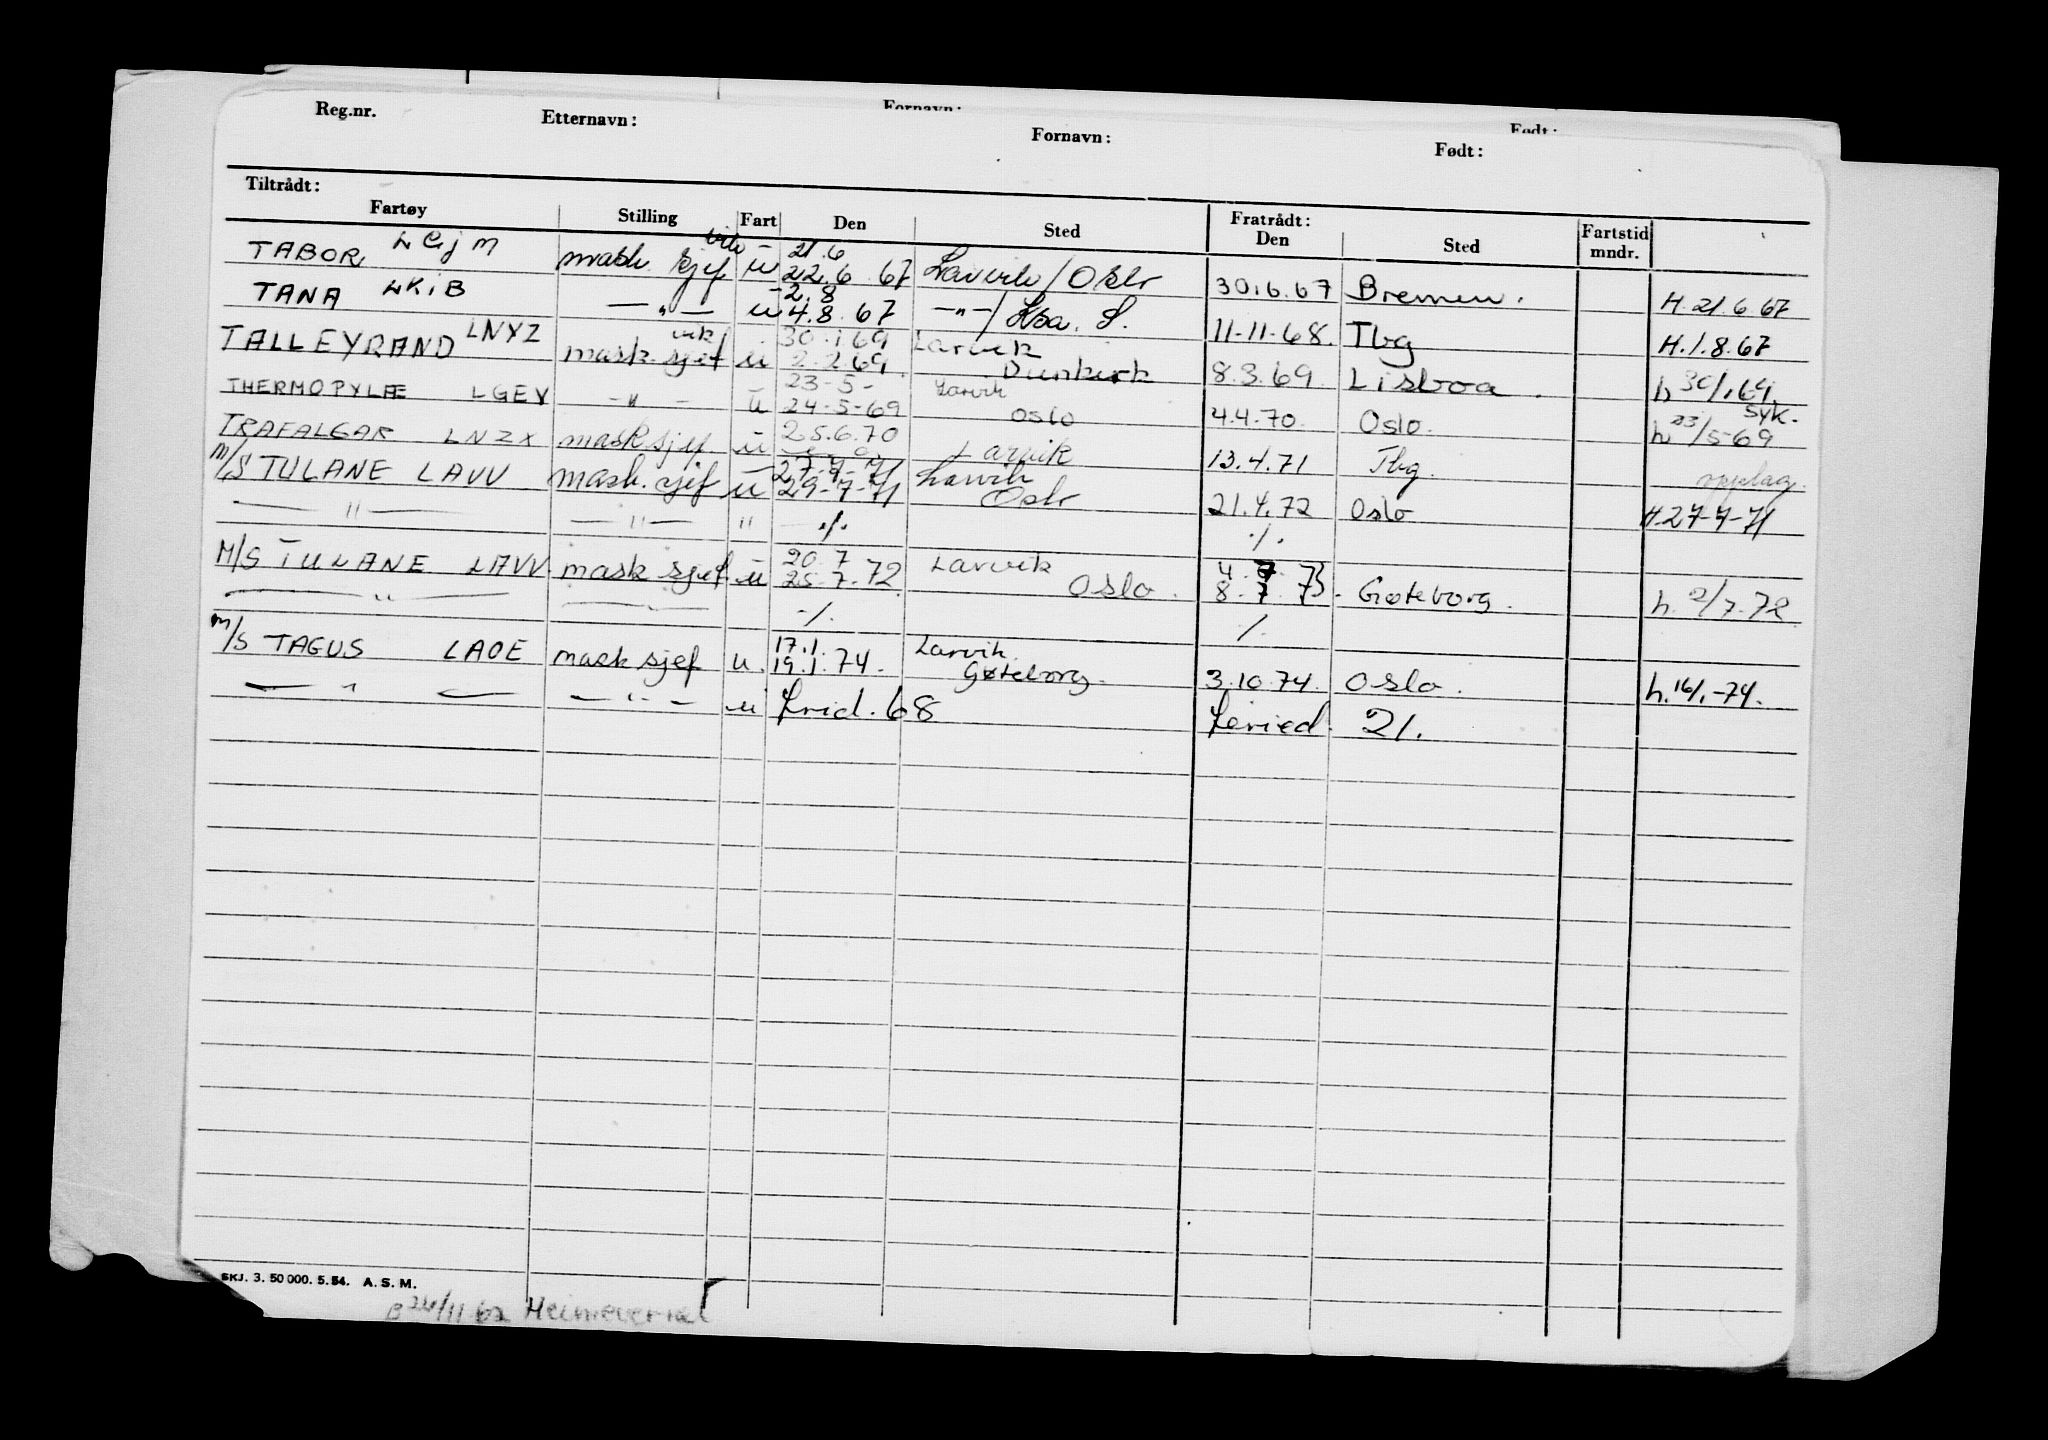 Fornavn: Født:
Reg.nr. Etternavn: Fornavn: Født:
Tiltrådt: Fratrådt:
Fartøy Stilling Fart Den Sted Den Sted Fartstid mndr.
TABOR LCJM mask. sjef vik u 21.6 22.6.67 Larvik/Oslo 30.6.67 Bremen. H. 21.6.67
TANA LKIB —"— u 2.8 4.8.67 —"—/ Kba. S. 11-11-68. Tbg H. 1.8.67
TALLEYRAND LNYZ mask. sjef vik u 30.1.69 2.2.69. Larvik Dunkerk 8.3.69 Lisboa. h 30/1.69.
THERMOPYLÆ LGEV —"— u 23-5- 24-5-69 Larvik Oslo 4.4.70. Oslo. Syk. h 23/5-69
TRAFALGAR LNZX mask sjef. u 25.6.70 Larvik 13.4.71 Tbg. opplag.
M/S TULANE LAVV mask. sjef u 27-7-71 29-7-71 Larvik Oslo 21.4.72 Oslo H. 27-7-71
—"— —"— " ./. ./.
M/S TULANE LAVV mask sjef u 20.7 25.7.72 Larvik Oslo. 4. 73 8. 73. Gøteborg. h. 2/7.72
—"— —"— ./. ./.
M/S TAGUS LAOE mask sjef u. 17.1. 19.1.74. Larvik. Gøteborg. 3.10.74. Oslo. h. 16/1.-74.
—"— —"— u 68 21.
SKJ. 3. 50 000. 5. 54. A. S. M.
Heimevernet